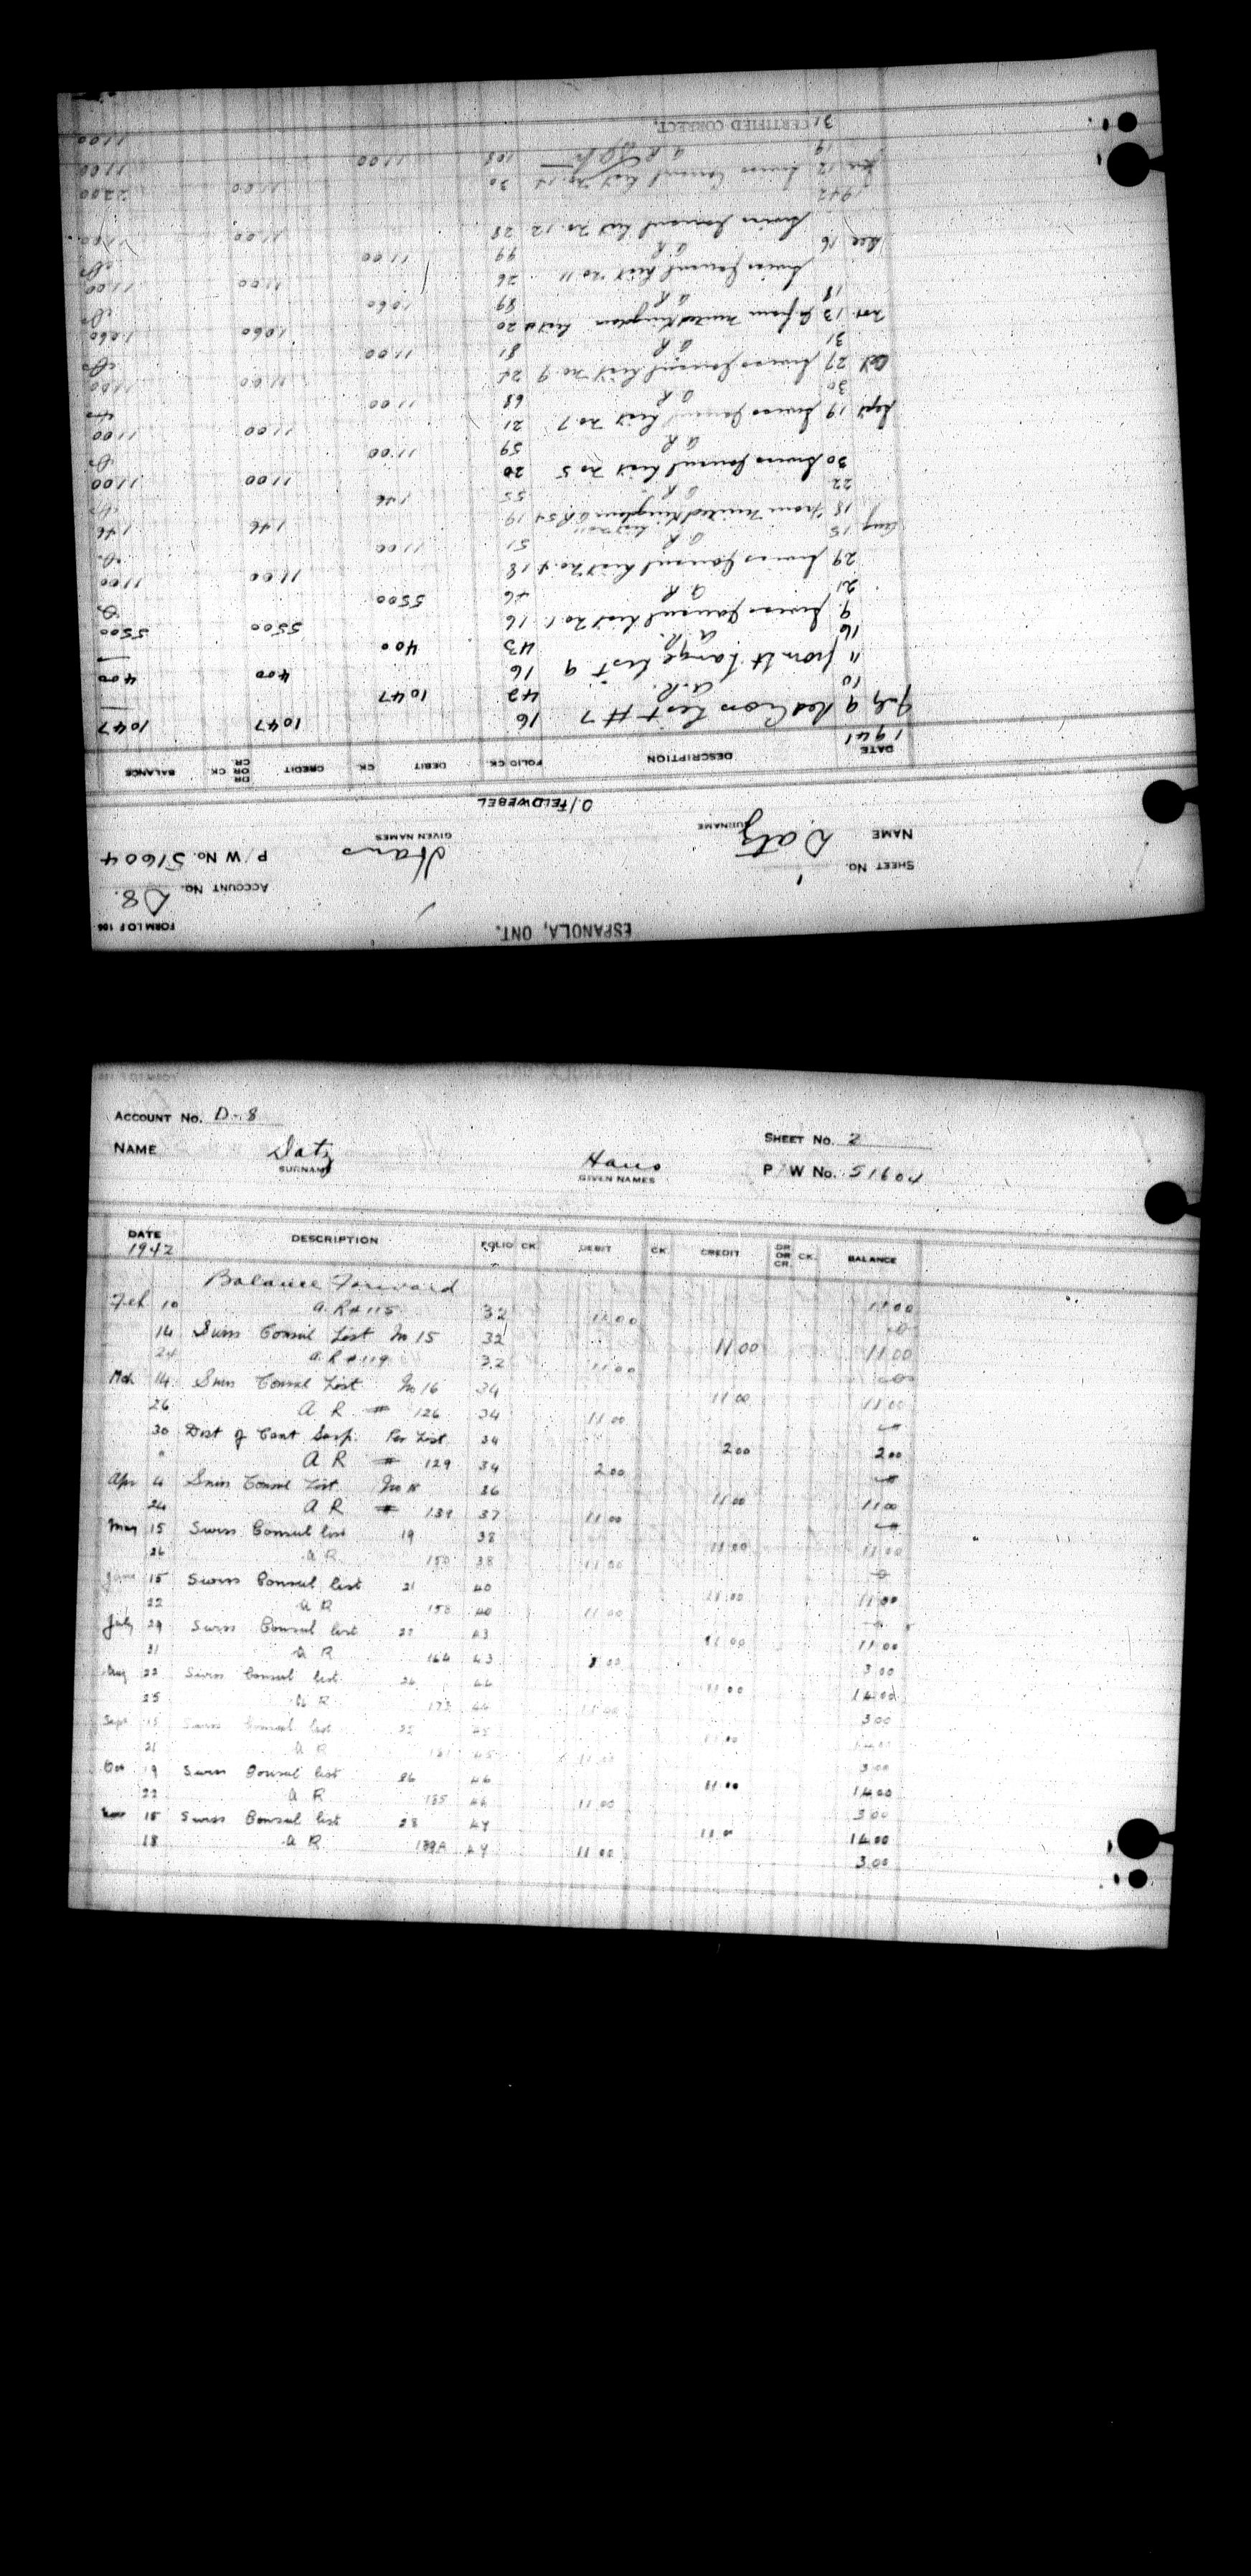 FORM LOF 106
ESPANOLA, ONT.
ACCOUNT No. D8.
SHEET No. 1
P/W No. 51604
NAME Datz Hans
SURNAME GIVEN NAMES
O/FELDWEBEL
DATE DESCRIPTION FOLIO CK. DEBIT CK. CREDIT DR OR CR CK. BALANCE
1941
July 9 List #7 16 1047 1047
10 A.R. 42 1047
11 from Lt Lange List 9 16 400 400
16 A.R. 43 400
9 Swiss Consul List No. 1 16 5500 5500
21 A.R. 46 5500
29 Swiss Consul List No. 4 18 1100 1100
Aug 15 A R 51 1100
18 from United Kingdom 19 146 146
22 A R 55 146
30 Swiss Consul List No 5 20 1100 1100
A R 59 1100
Sept 19 Swiss Consul List No 7 21 1100 1100
30 A R 68 1100
Oct 27 Swiss Consul List No. 9 24 1100 1100
31 A R 81 1100
Nov. 13 from United Kingdom List 20 1060 1060
18 A R 89 1060
Swiss Consul List No 11 26 1100 1100
Dec 16 A R 99 1100
Swiss Consul List No. 12 28 1100 1100
1942
Jan 12 Swiss Consul List No. 14 30 1100 2200
19 A R 108 1100 1100
31 1100
CERTIFIED CORRECT.
ACCOUNT No. D-8
SHEET No. 2
NAME Datz Hans P/W No. 51604
SURNAME GIVEN NAMES
DATE DESCRIPTION FOLIO CK. DEBIT CK. CREDIT DR OR CR. CK. BALANCE
1942
Balance Forward 11.00
Feb 10 A.R # 115 32 11.00 0
14 Swiss Consul List No 15 32 11.00 11.00
24 A.R # 119 32 11.00 0
Mch 14 Swiss Consul List No 16 34 11.00 11.00
26 A R # 126 34 11.00
30 Dist of Cant Susp. Per List. 34 2.00 2.00
" A R # 129 34 2.00
Apr 4 Swiss Consul List. No 18 36 11.00 11.00
24 A R # 139 37 11.00
May 15 Swiss Consul list 19 38 11.00 11.00
26 A R 150 38 11.00 0
June 15 Swiss Consul list 21 40 11.00 11.00
22 A R 158 40 11.00
July 29 Swiss Consul list 22 43 11.00 11.00
31 A R 164 43 8.00 3.00
Aug 22 Swiss Consul list. 24 44 11.00 14.00
25 A R 173 44 11.00 3.00
Sept 15 Swiss Consul list 25 45 11.00 14.00
21 A R 181 45 11.00 3.00
Oct 19 Swiss Consul list 26 46 11.00 14.00
22 A R 185 46 11.00 3.00
Nov 15 Swiss Consul list 28 47 11.00 14.00
18 A R 189A 47 11.00 3.00